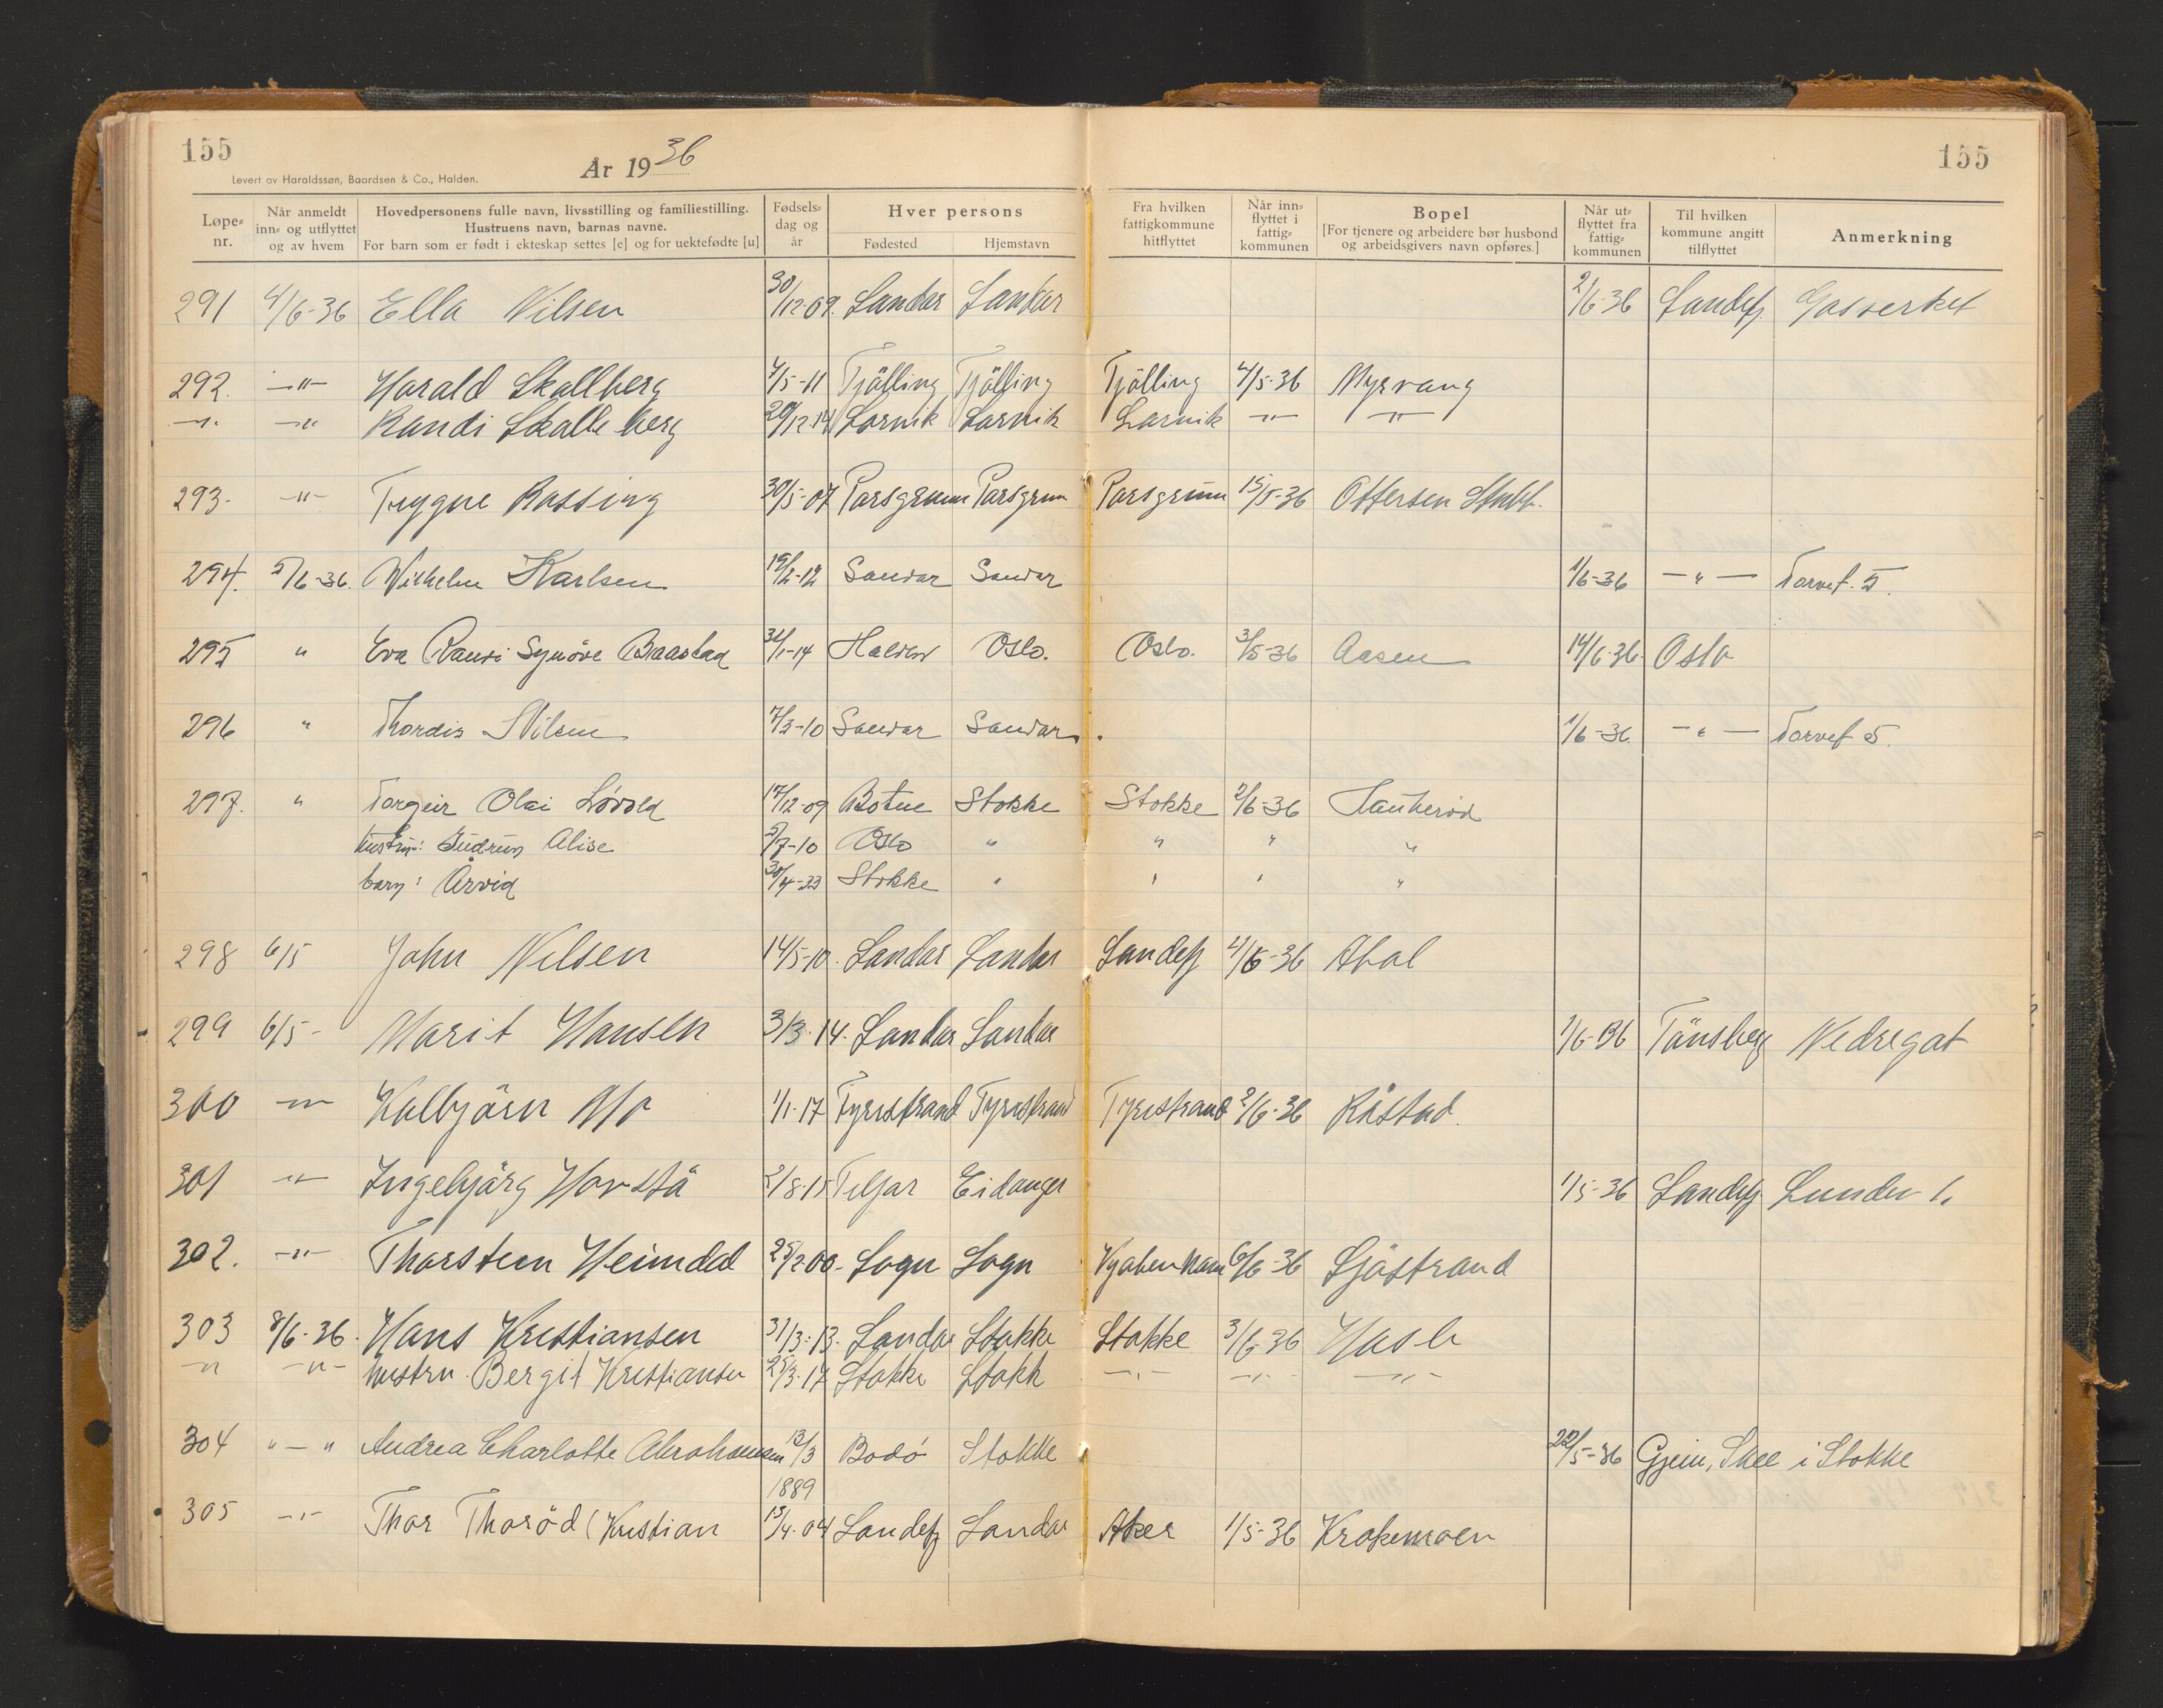 155
155
År 1936
Levert av Haraldssøn, Baardsen & Co., Halden.
Løpe-nr. Når anmeldt inn- og utflyttet og av hvem Hovedpersonens fulle navn, livsstilling og familiestilling. Hustruens navn, barnas navne. For barn som er født i ekteskap settes [e] og for uektefødte [u] Fødsels-dag og år Hver persons Fødested Hjemstavn Fra hvilken fattigkommune hitflyttet Når inn-flyttet i fattig-kommunen Bopel [For tjenere og arbeidere bør husbond og arbeidsgivers navn opføres.] Når ut-flyttet fra fattig-kommunen Til hvilken kommune angitt tilflyttet Anmerkning
291 4/6-36 Ella Nilsen 30/12-09. Sandar Sandar 2/6-36 Sandefj. Gasverket
292. -"- Harald Skallberg 7/5-11 Tjölling Tjölling Tjölling 4/5-36 Myrvang
-"- -"- Randi Skalleberg 20/12-14 Larvik Larvik Larvik -"- -"-
293- -"- Trygve Rassing 30/5-07 Porsgrunn Porsgrun Porsgrunn 15/5-36 Ottersen Stubb.
294. 5/6-36. Wilhelm Karlsen 19/2-12 Sandar Sandar 1/6-36 -"- Torvet. 5.
295 " Eva Randi Synøve Braastad 31/1-14 Halden Oslo. Oslo. 3/5-36 Aasen 14/6-36. Oslo
296 " Thordis Nilsen 7/3-10 Sandar Sandar. 1/6-36 -"- Torvet 5.
297. " Torgeir Olai Løvold 17/12-09 Botne Stokke Stokke 2/6-36 Haukerød
hustru: Gudrun Alise 5/7-10 Oslo " " " "
barn: Arvid 30/4-33 Stokke " " " "
298 6/5 John Nilsen 14/5-10. Sandar Sandar Sandefj 4/6-36 Abal
299 6/5- Marit Hansen 3/3.14. Sandar Sandar 1/6-36 Tönsberg Nedregat
300 -"- Kolbjörn Mo 1/1-17 Tyristrand Tyristrand Tyristrand 2/6-36 Råstad.
301 -"- Ingebjörg Hovstå 2/8-15 Eidanger 1/5-36 Sandefj Lunden 1.
302. -"- Thorsteen Heimdal 25/2 00- Sogn Sogn 6/6-36 Sjöstrand
303 8/6-36. Hans Kristiansen 31/3-13. Sandar Stokke Stokke 3/6-36 Hasle
-"- -"- hustru. Bergit Kristiansen 25/3-17 Stokke Stokk -"- -"- -"-
304 "-" Andrea Charlotte Abrahamsen 13/3 1889 Bodó Stokke 22/5-36 Gjein, Skee i Stokke
305 -"- Thor Thoröd (Kristian 13/4-04 Sandefj Sandar Aker 1/5-36 Krokemoen